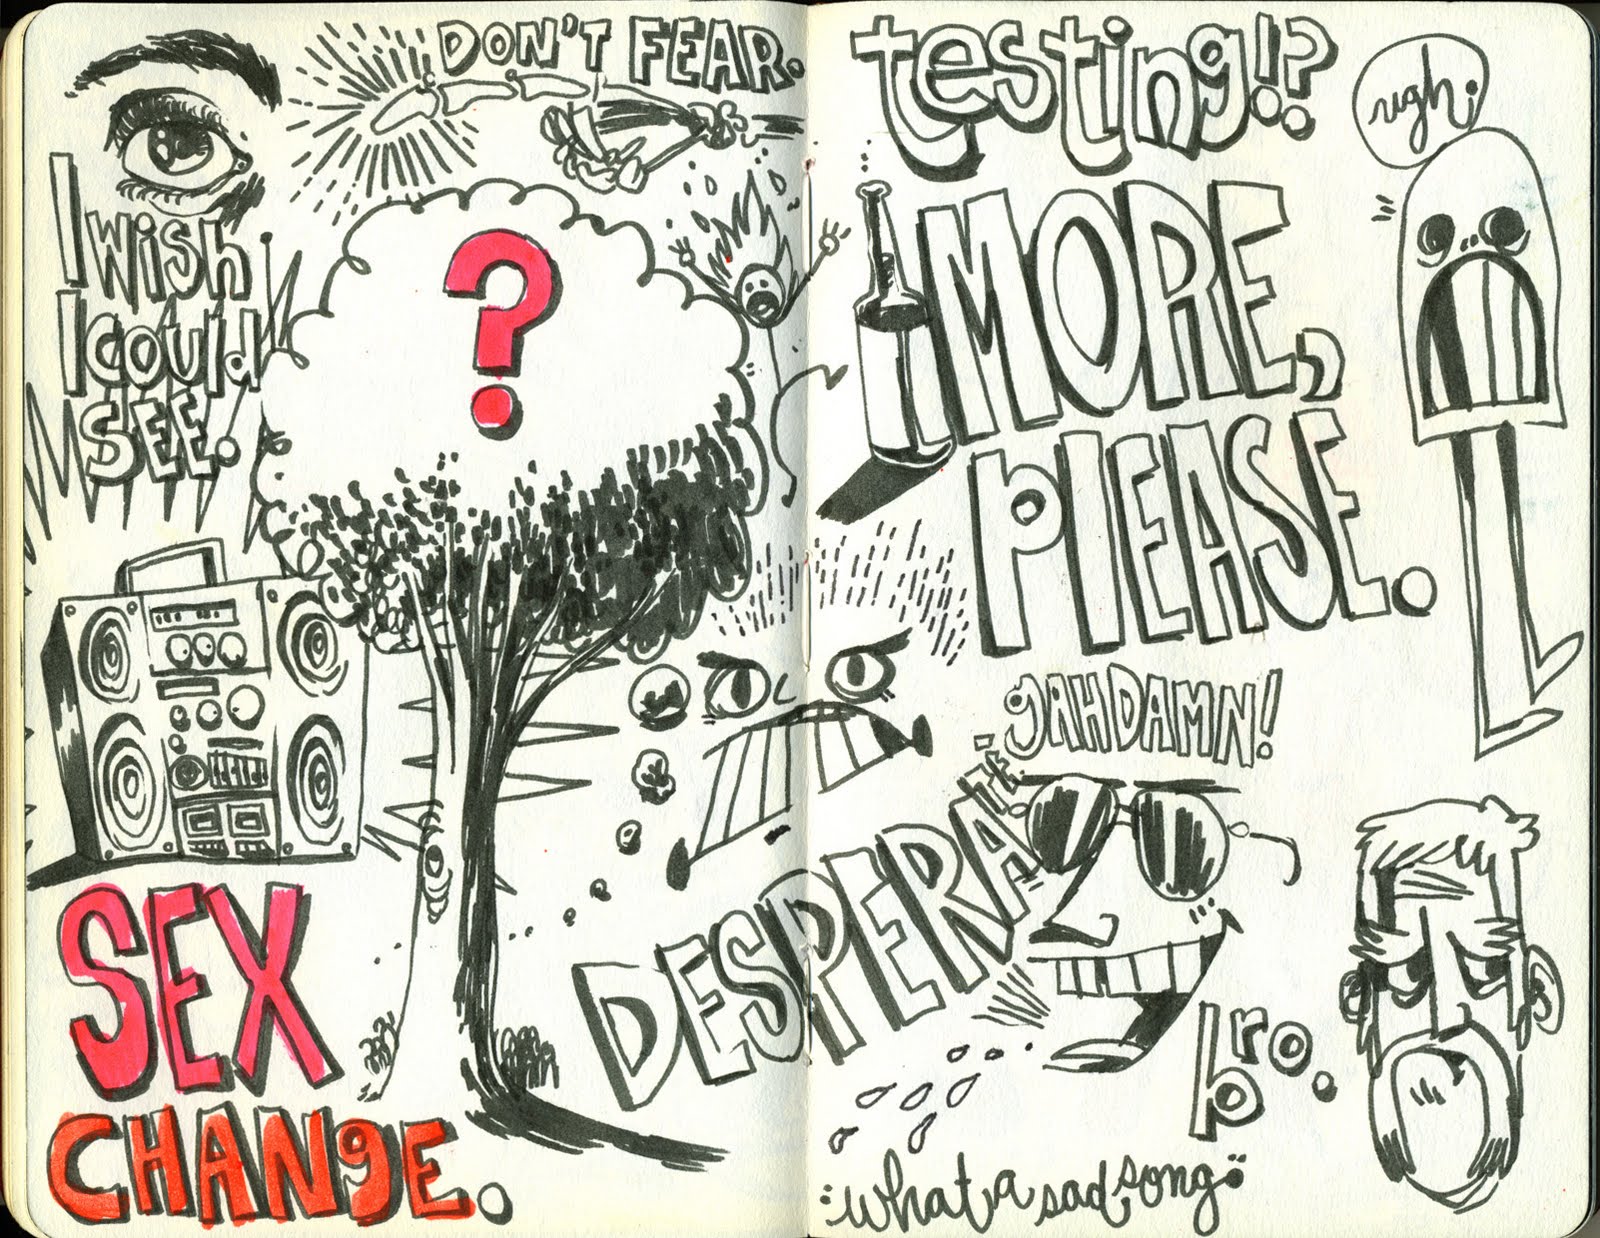 DON'T FEAR.
I WiSh
I COUld
SEE.
?
SEX
CHANgE.
testing!?
ugh!
MORE,
PlEASE.
gAHDAMN!
DESPERATE.
bro.
what a sad song